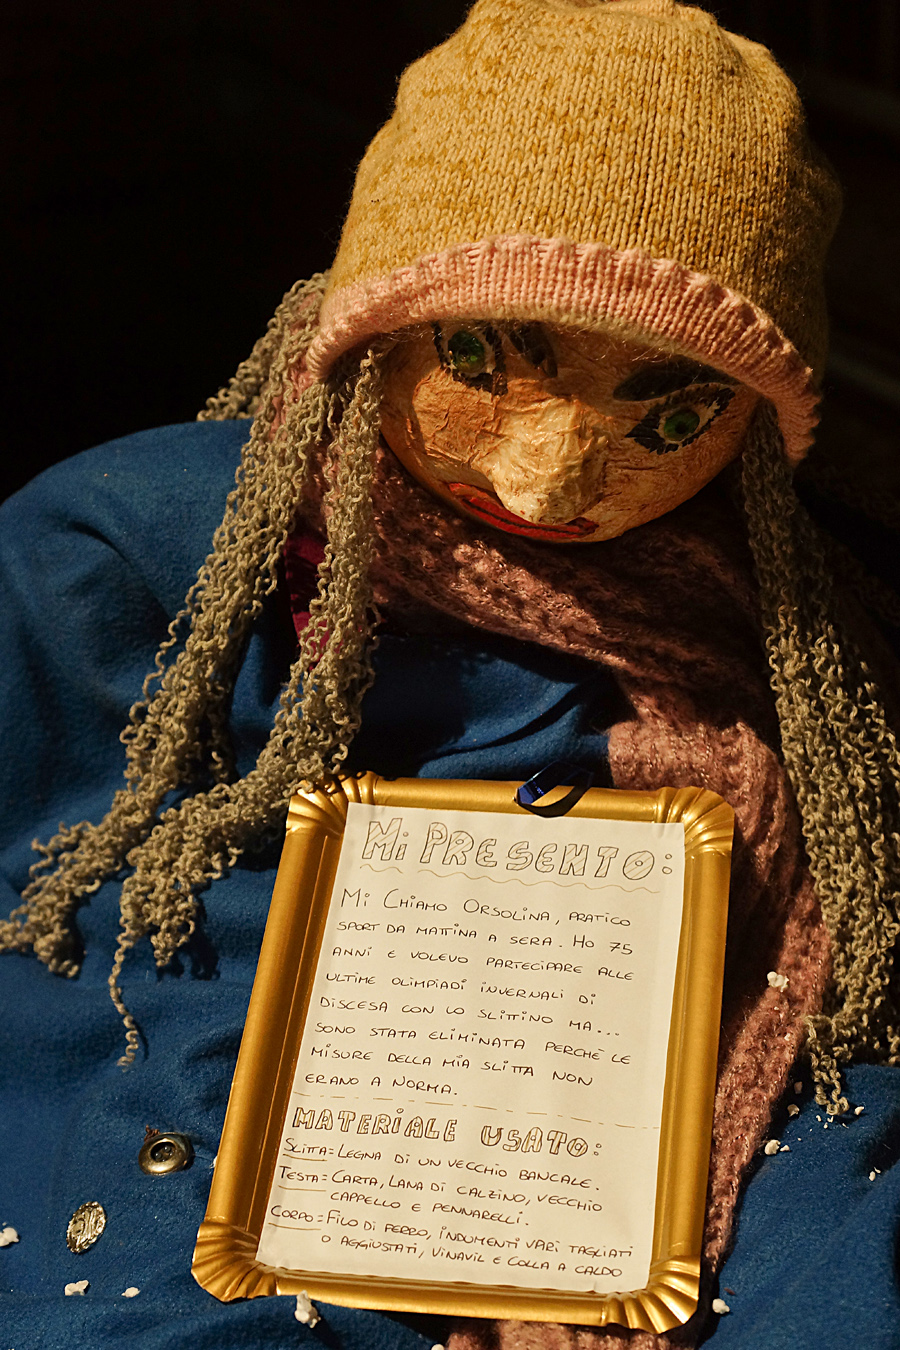 Mi PRESENTO:
Mi CHIAMO ORSOLINA, PRATICO
SPORT DA MATTINA A SERA. HO 75
ANNI E VOLEVO PARTECIPARE ALLE
ULTIME OLIMPIADI INVERNALI DI
DISCESA CON LO SLITTINO MA...
SONO STATA ELIMINATA PERCHÈ LE
MISURE DELLA MIA SLITTA NON
ERANO A NORMA.
MATERIALE USATO:
SLITTA = LEGNA DI UN VECCHIO BANCALE.
TESTA = CARTA, LANA DI CALZINO, VECCHIO
CAPPELLO E PENNARELLI.
CORPO = FILO DI FERRO, INDUMENTI VARI TAGLIATI
O AGGIUSTATI, VINAVIL E COLLA A CALDO